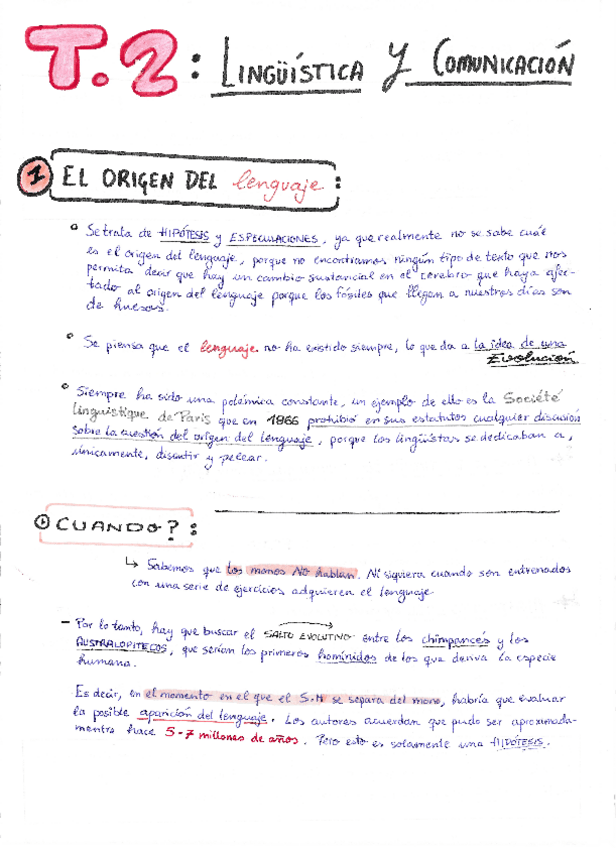 T.2: LINGÜÍSTICA Y COMUNICACIÓN
1 EL ORIGEN DEL lenguaje:
Se trata de HIPÓTESIS y ESPECULACIONES, ya que realmente no se sabe cuál
es el origen del lenguaje, porque no encontramos ningún tipo de texto que nos
permita decir que hay un cambio sustancial en el cerebro que haya afec-
tado al origen del lenguaje porque los fósiles que llegan a nuestros días son
de huesos.
Se piensa que el lenguaje no ha existido siempre, lo que da a la idea de una
Evolución
Siempre ha sido una polémica constante, un ejemplo de ello es la Société
Linguistique de Paris que en 1866 prohibió en sus estatutos cualquier discusión
sobre la cuestión del origen del lenguaje, porque los lingüistas se dedicaban a,
únicamente, discutir y pelear.
CUANDO?:
↳ Sabemos que los monos No hablan. Ni siquiera cuando son entrenados
con una serie de ejercicios adquieren el lenguaje
- Por lo tanto, hay que buscar el SALTO EVOLUTIVO entre los chimpancés y los
AUSTRALOPITECOS, que serían los primeros homínidos de los que deriva la especie
humana.
Es decir, en el momento en el que el S.H se separa del mono, habría que evaluar
la posible aparición del lenguaje. Los autores acuerdan que pudo ser aproximada-
mente hace 5-7 millones de años. Pero esto es solamente una HIPÓTESIS.